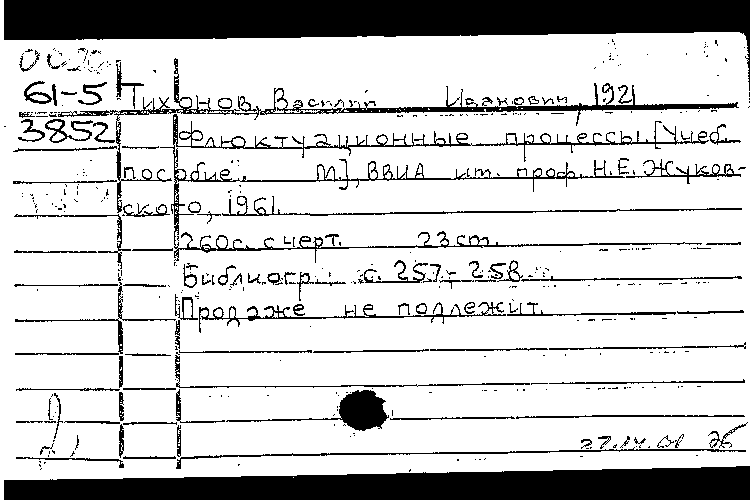 61-5 Тихонов, Василий Иванович, 1921
3852 Флюктуационные процессы. [Учеб.
пособие. М.], ВВИА им. проф. Н.Е. Жуков-
ского, 1961.
260с. с черт. 23 см.
Библиогр.: с. 257-258.
Продаже не подлежит.